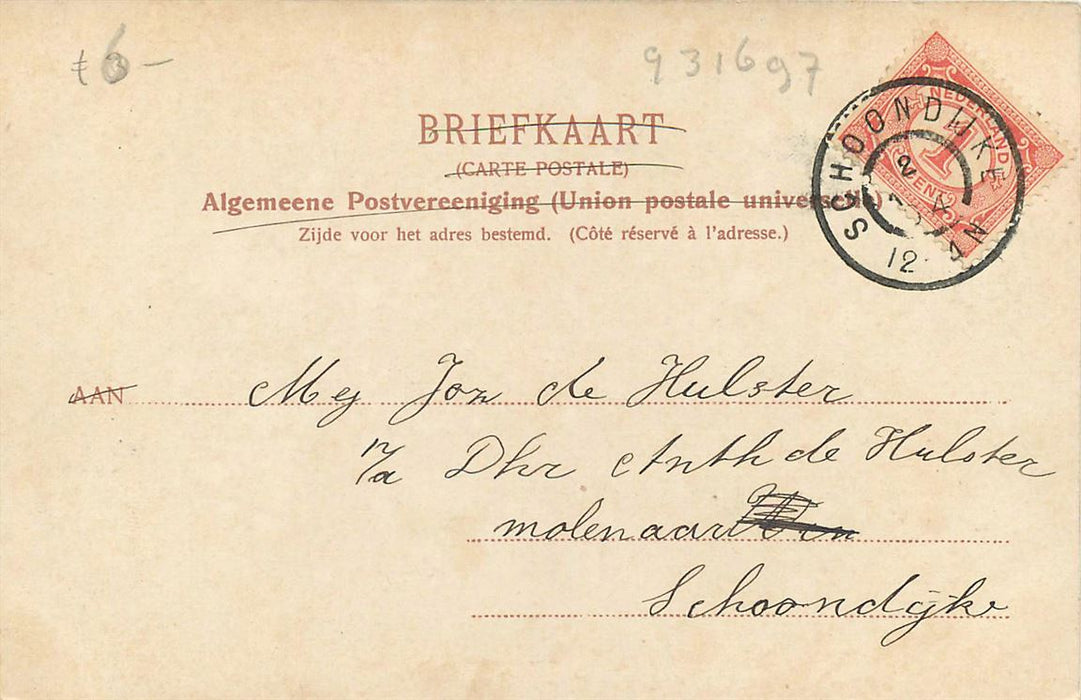 6 -
931697
BRIEFKAART
(CARTE POSTALE)
Algemeene Postvereeniging (Union postale universelle)
Zijde voor het adres bestemd. (Côté réservé à l'adresse.)
NEDERLAND
1
CENT
SCHOONDIJKE
12
AAN Mej Joz de Hulster
p/a Dhr Anth de Hulster
molenaar
Schoondijke